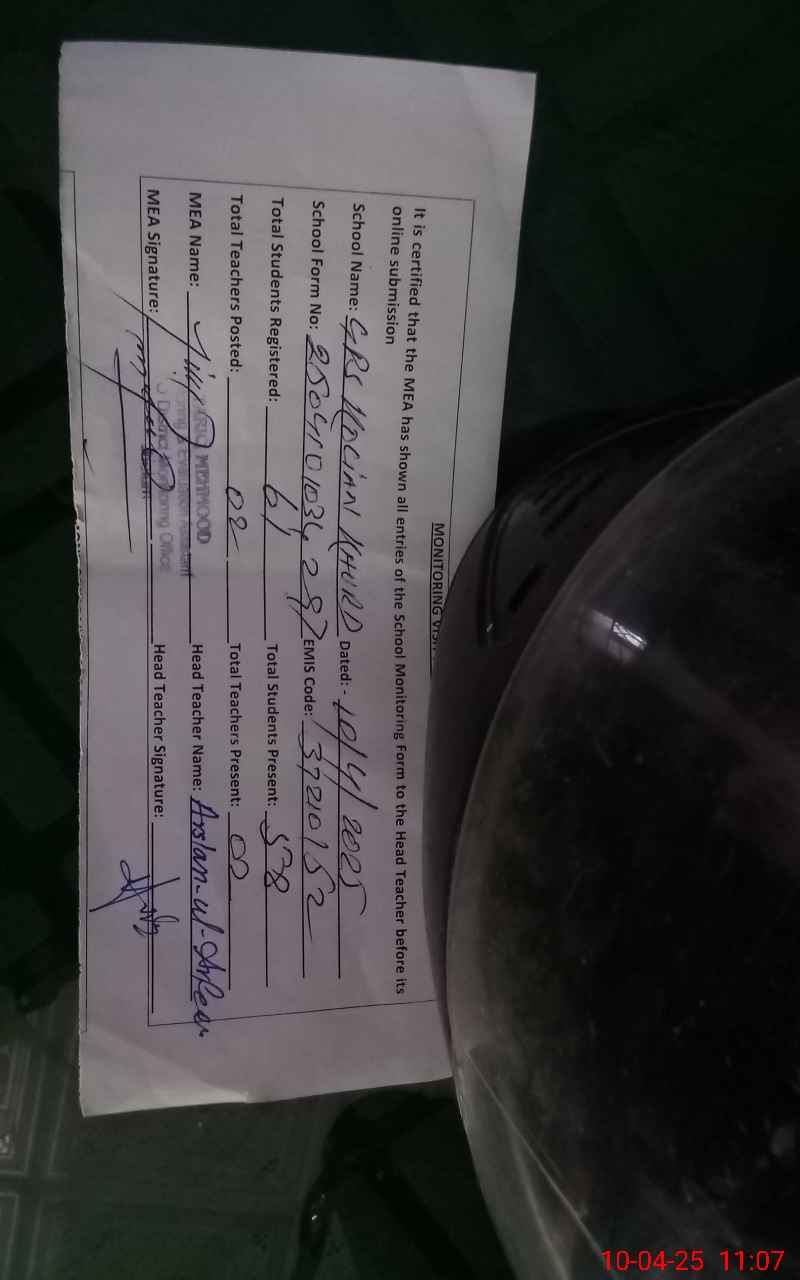 MONITORING VISIT
It is certified that the MEA has shown all entries of the School Monitoring Form to the Head Teacher before its
online submission
School Name: GPS MOCIAN KHURD Dated:- 10/4/2025
School Form No: EMIS Code: 37210152
Total Students Registered: 61 Total Students Present: 58
Total Teachers Posted: 02 Total Teachers Present: 02
MEA Name: Head Teacher Name: Arslan-ul-
MEHMOOD
Evaluation Assistant
District Monitoring Office
MEA Signature: Head Teacher Signature:
10-04-25 11:07